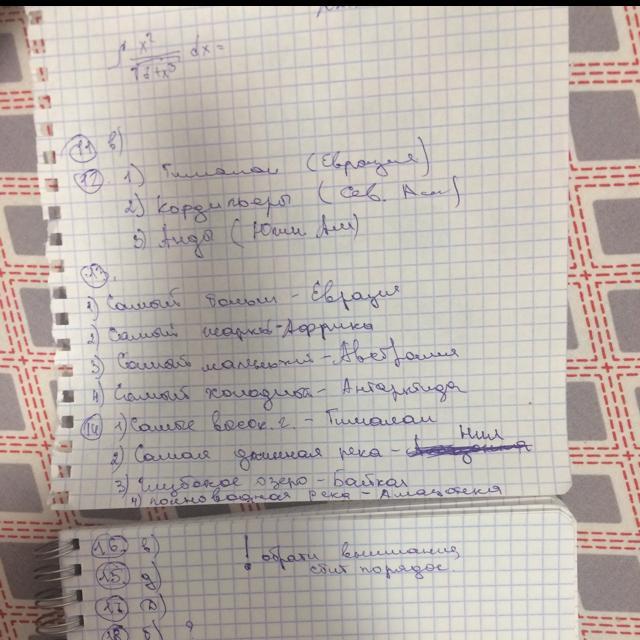 ∫ x² / √(3+x³) dx =
11 в)
12 1) Гималаи (Евразия)
2) Кордильеры (Сев. Ам)
3) Анды (Южн. Ам)
13.
1) Самый больш - Евразия
2) Самый жарк - Африка
3) Самый маленький - Австралия
4) Самый холодный - Антарктида
14 1) Самые высок. г. - Гималаи
2) Самая длинная река - Нил
3) Глубокое озеро - Байкал
4) полноводная река - Амазонка
16. в)
15 д)
! обрати внимания
стит порядос
17
18 б)